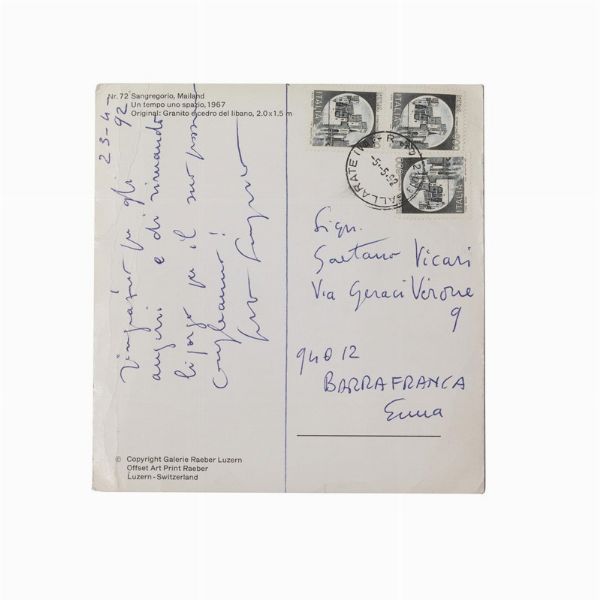 Nr. 72 Sangregorio, Mailand
Un tempo uno spazio, 1967
Original: Granito e cedro del libano, 2.0 x 1.5 m
23-4-92
ringrazio per gli
auguri e di rimando
li porgo per il suo pross
compleanno!
ITALIA
ITALIA
ITALIA
GALLARATE
-5-5-92
Sign.
Gaetano Vicari
Via Geraci Virone
9
94012
BARRAFRANCA
Enna
© Copyright Galerie Raeber Luzern
Offset Art Print Raeber
Luzern - Switzerland